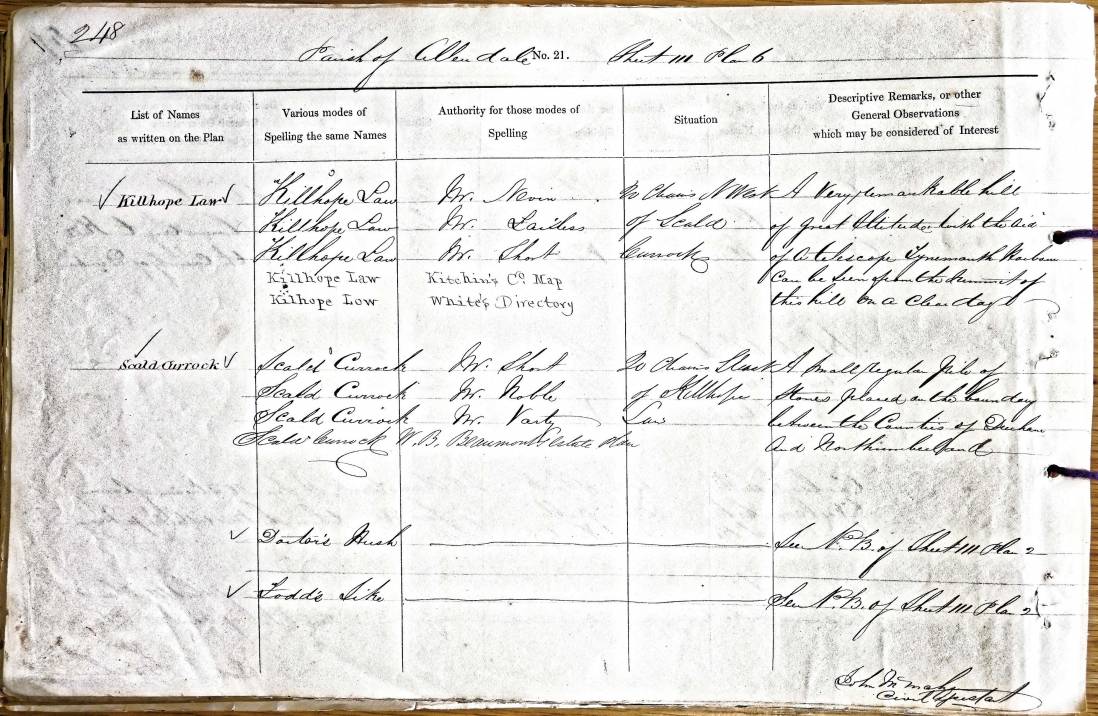 248
Parish of Allendale No. 21. Sheet 111 Plan 6
List of Names
as written on the Plan
Various modes of
Spelling the same Names
Authority for those modes of
Spelling
Situation
Descriptive Remarks, or other
General Observations
which may be considered of Interest
Killhope Law
Killhope Law
Killhope Law
Killhope Law
Killhope Law
Kilhope Low
Mr. Nevin
Mr.
Mr. Short
Kitchin's Co. Map
White's Directory
20 Chains N West
of Scald
Currock
A Very remarkable hill
of great Altitude with the aid
of a telescope Tynemouth Harbour
Can be seen from the summit of
this hill on a clear day
Scald Currock
Scald Currock
Scald Currock
Scald Currock
Scald Currock
Mr. Short
Mr. Noble
Mr. Varty
W. B. Beaumont's estate plan
20 Chains S East
of Killhope
Law
A Small regular Pile of
Stones placed on the boundary
between the Counties of Durham
and Northumberland
Doctor's Hush
See N.B. of Sheet 111 Plan 2
Todd's Sike
See N.B. of Sheet 111 Plan 2
John McMahon
Civil Assistant